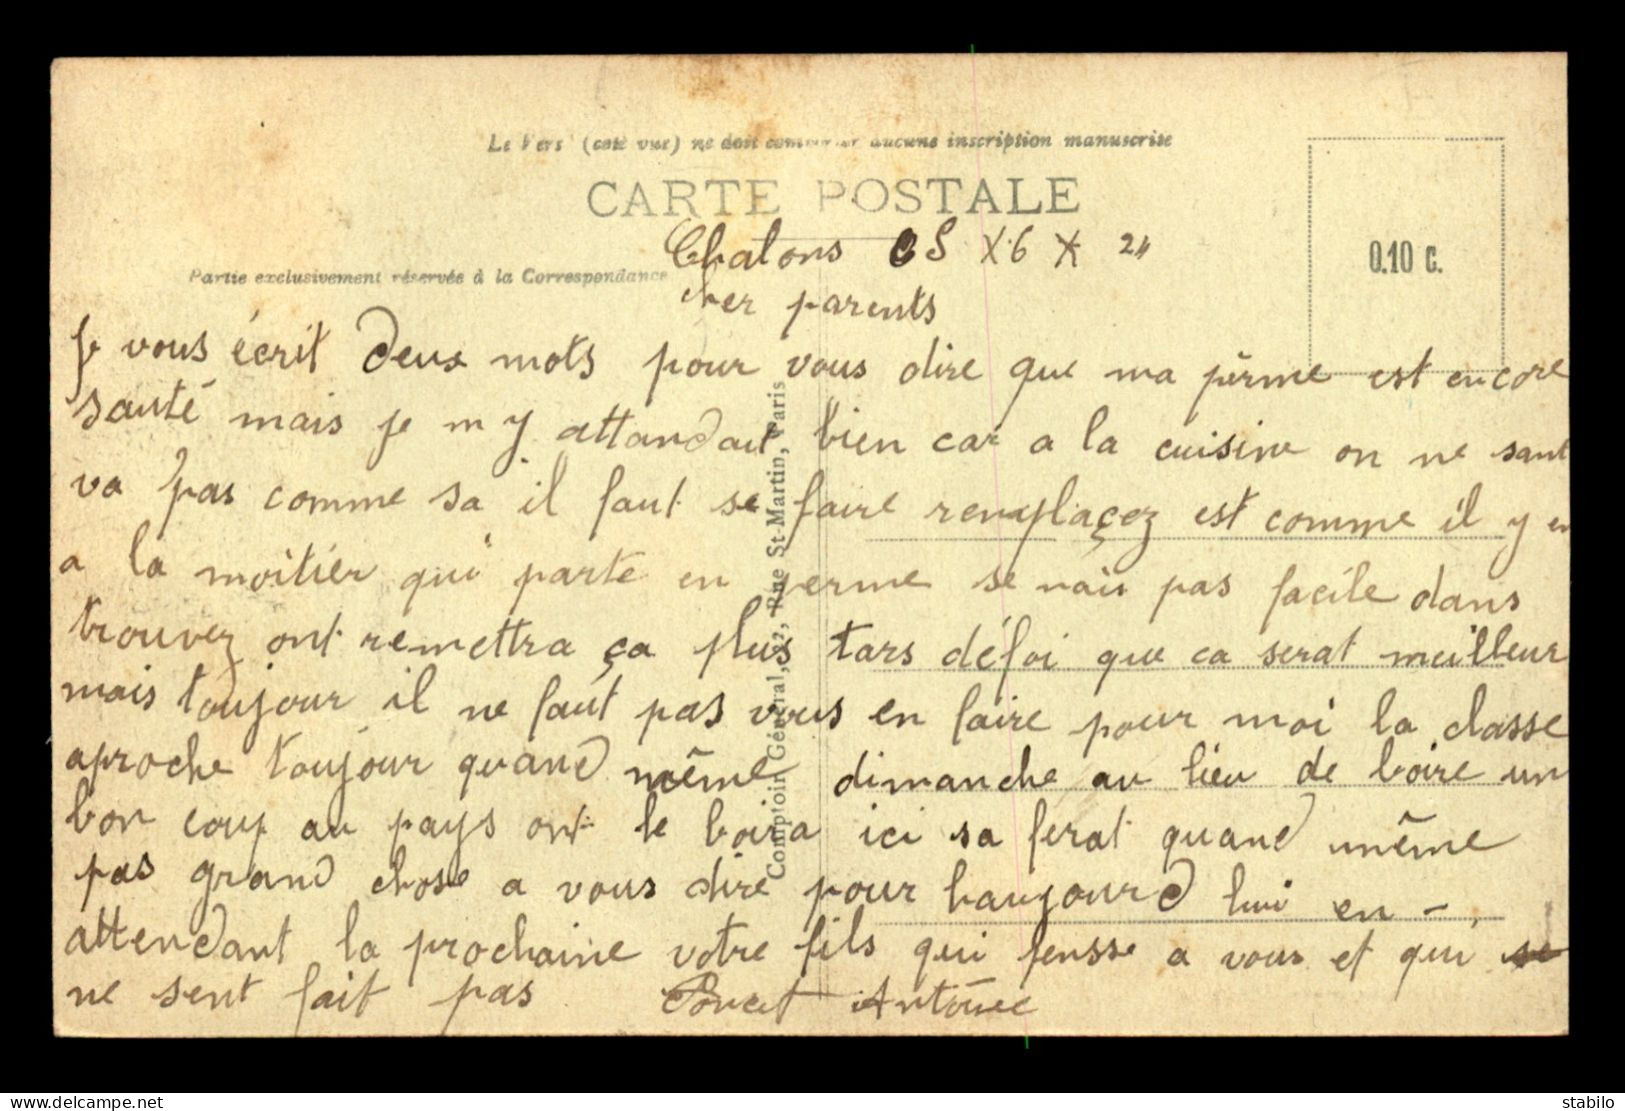 (coté vue) ne doit aucune inscription manuscrite
CARTE POSTALE
Chalons S X 6 X 24
0.10 c.
Partie exclusivement réservée à la Correspondance
cher parents
Je vous écrit deux mots pour vous dire que ma pèrme est encore
santé mais je m y attandait bien car a la cuisine on ne sant
va pas comme sa il faut se faire remplaçez est comme il y en
a la moitier qui parte en perme se nais pas facile dans
trouvez ont remettra ça plus tars défoi que ca serat meilleur
mais toujour il ne faut pas vous en faire pour moi la classe
aproche toujour quand même dimanche au lieu de boire un
bon coup au pays ont le boira ici sa ferat quand même
pas grand chose a vous dire pour haujourd hui en -
attendant la prochaine votre fils qui pensse a vous et qui se
ne sent fait pas Antoine
Comptoir Général, Rue St-Martin, Paris
stabilo